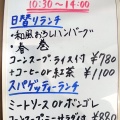 10:30〜14:00
日替りランチ
・和風おろしハンバーグ
・春巻
コーンスープ・ライス付 ¥780
+コーヒーor紅茶 ¥1100
スパゲッティーランチ
ミートソース or ボンゴレ
コーンスープ・ミニサラダ付 ¥880